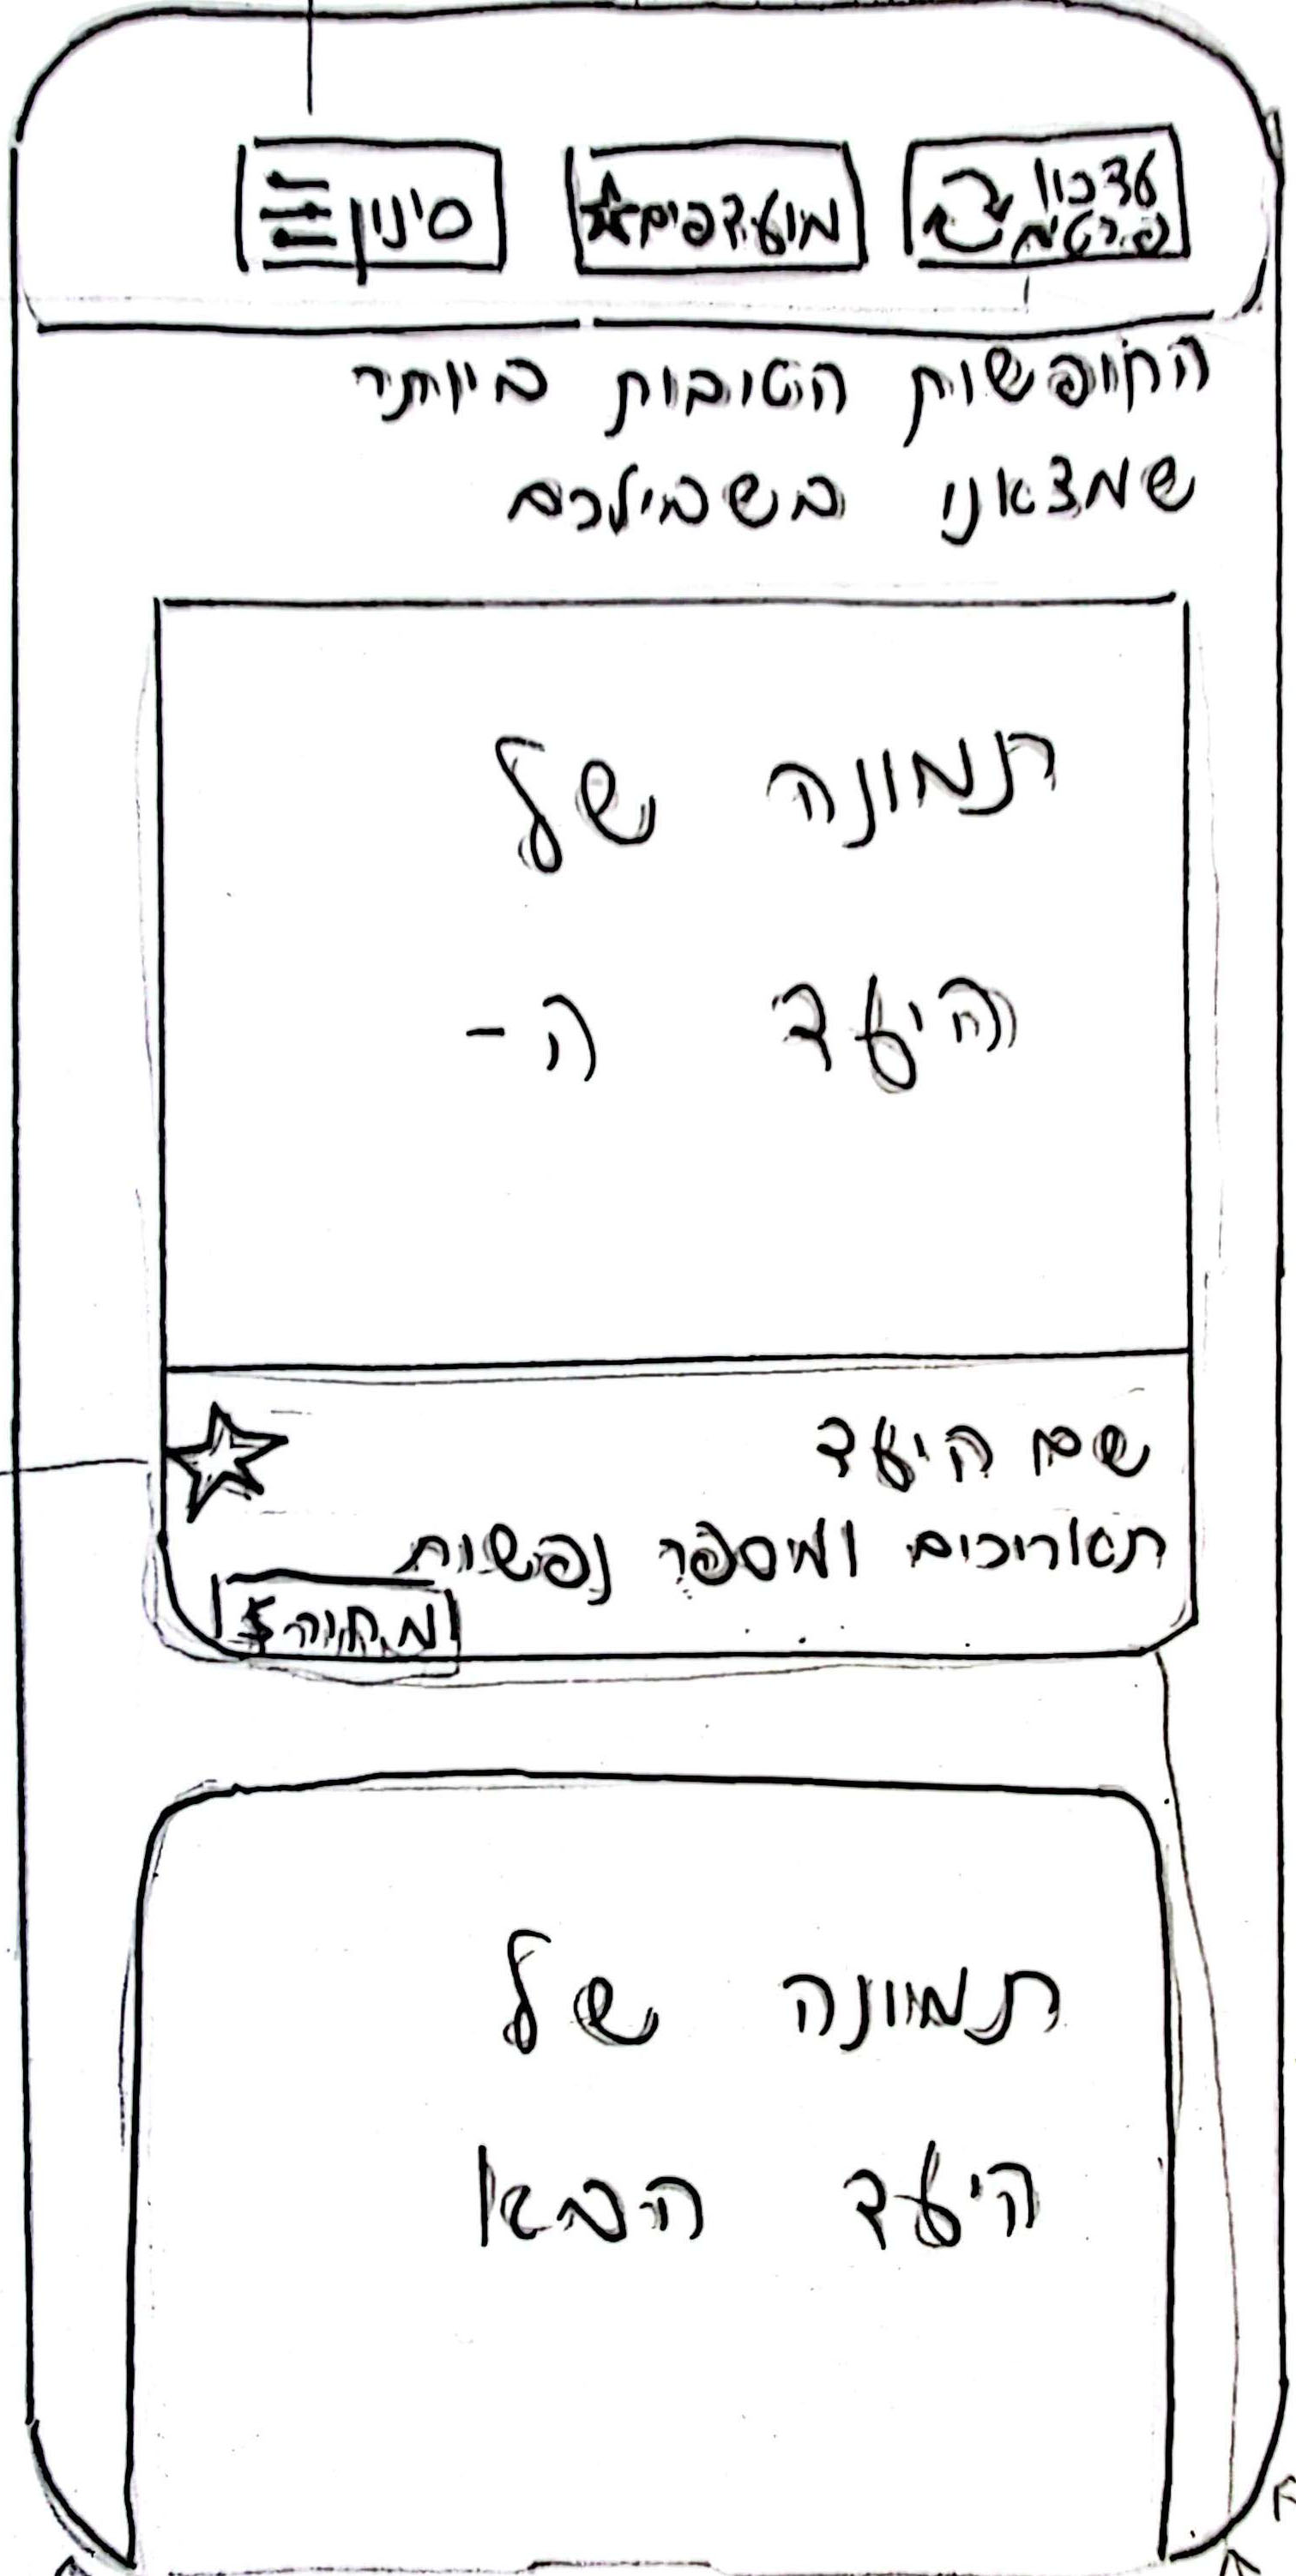 עדכון
פרטים
מועדפים
סינון
החופשות הטובות ביותר
שמצאנו בשבילכם
תמונה של
היעד ה-
שם היעד
תאריכים ומספר נפשות
מחיר
תמונה של
היעד הבא